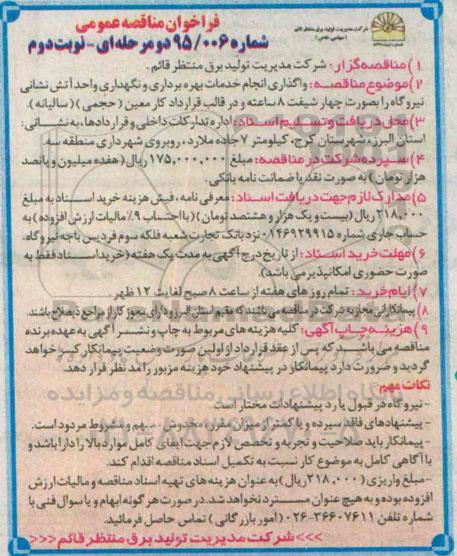 شرکت مدیریت تولید برق منتظر قائم
(سهامی خاص)
فراخوان مناقصه عمومی
شماره ۹۵/۰۰۶ دو مرحله ای - نوبت دوم
۱) مناقصه گزار: شرکت مدیریت تولید برق منتظر قائم.
۲) موضوع مناقصه: واگذاری انجام خدمات بهره برداری و نگهداری واحد آتش نشانی
نیروگاه را بصورت چهار شیفت ۸ ساعته و در قالب قرارداد کار معین (حجمی) (سالیانه).
۳) محل دریافت و تسلیم اسناد: اداره تدارکات داخلی و قراردادها، به نشانی:
استان البرز، شهرستان کرج، کیلومتر ۷ جاده ملارد، روبروی شهرداری منطقه سه.
۴) سپرده شرکت در مناقصه: مبلغ ۱۷۵,۰۰۰,۰۰۰ ریال (هفده میلیون و پانصد
هزار تومان) به صورت نقد یا ضمانت نامه بانکی.
۵) مدارک لازم جهت دریافت اسناد: معرفی نامه، فیش هزینه خرید اسناد به مبلغ
۲۱۸,۰۰۰ ریال (بیست و یک هزار و هشتصد تومان) (با احتساب ۹٪ مالیات ارزش افزوده) به
حساب جاری شماره ۰۱۴۶۹۲۹۹۱۵ نزد بانک تجارت شعبه فلکه سوم فردیس باجه نیروگاه.
۶) مهلت خرید اسناد: از تاریخ درج آگهی به مدت یک هفته (خرید اسناد فقط به
صورت حضوری امکانپذیر می باشد).
۷) ایام خرید: تمام روز های هفته از ساعت ۸ صبح لغایت ۱۲ ظهر
۸) پیمانکارانی مجاز به شرکت در مناقصه می باشند که مقیم استان البرز و دارای مجوز کار از مراجع ذیصلاح باشند.
۹) هزینه چاپ آگهی: کلیه هزینه های مربوط به چاپ و نشر آگهی به عهده برنده
مناقصه می باشد که پس از عقد قرارداد از اولین صورت وضعیت پیمانکار کسر خواهد
گردید و ضرورت دارد پیمانکار در پیشنهاد خود هزینه مزبور را مد نظر قرار دهد.
نکات مهم
- نیروگاه در قبول یا رد پیشنهادات مختار است.
- پیشنهادهای فاقد سپرده و یا کمتر از میزان مقرر، مخدوش، مبهم و مشروط مردود است.
- پیمانکار باید صلاحیت و تجربه و تخصص لازم جهت ایفای کامل موارد بالا را دارا باشد و
با آگاهی کامل به موضوع کار نسبت به تکمیل اسناد مناقصه اقدام کند.
- مبلغ واریزی (۲۱۸,۰۰۰ ریال) به عنوان هزینه های تهیه اسناد مناقصه و مالیات ارزش
افزوده بوده و به هیچ عنوان مسترد نخواهد شد. در صورت هر گونه ابهام و یا سوال فنی با
شماره تلفن ۳۶۶۰۷۶۱۱-۰۲۶ (امور بازرگانی) تماس حاصل فرمائید.
>>> شرکت مدیریت تولید برق منتظر قائم <<<